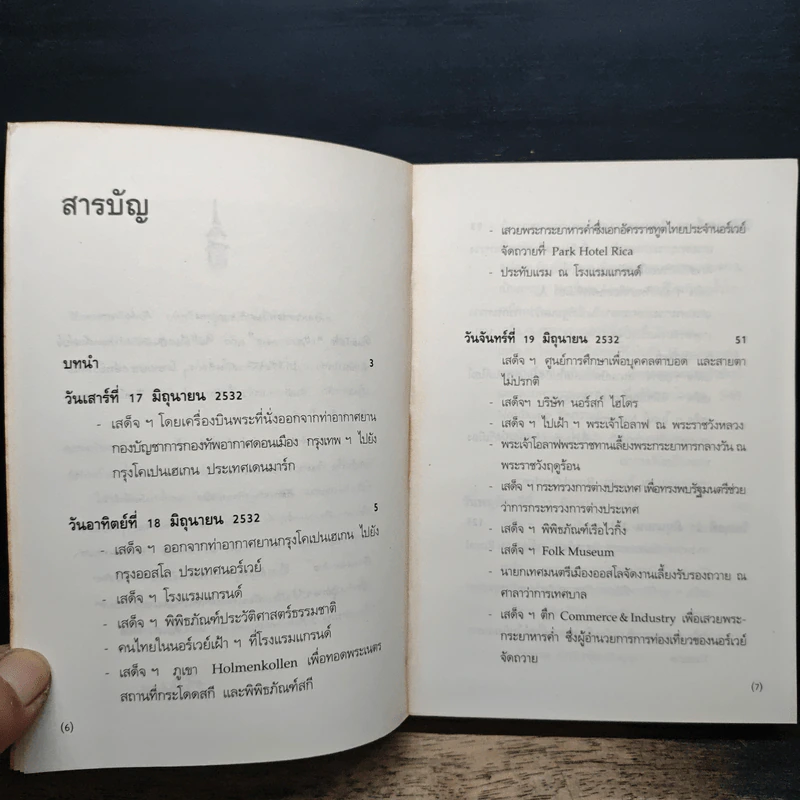 สารบัญ
บทนำ 3
วันเสาร์ที่ 17 มิถุนายน 2532
- เสด็จ ฯ โดยเครื่องบินพระที่นั่งออกจากท่าอากาศยาน
กองบัญชาการกองทัพอากาศดอนเมือง กรุงเทพ ฯ ไปยัง
กรุงโคเปนเฮเกน ประเทศเดนมาร์ก
วันอาทิตย์ที่ 18 มิถุนายน 2532 5
- เสด็จ ฯ ออกจากท่าอากาศยานกรุงโคเปนเฮเกน ไปยัง
กรุงออสโล ประเทศนอร์เวย์
- เสด็จ ฯ โรงแรมแกรนด์
- เสด็จ ฯ พิพิธภัณฑ์ประวัติศาสตร์ธรรมชาติ
- คนไทยในนอร์เวย์เฝ้า ฯ ที่โรงแรมแกรนด์
- เสด็จ ฯ ภูเขา Holmenkollen เพื่อทอดพระเนตร
สถานที่กระโดดสกี และพิพิธภัณฑ์สกี
(6)
- เสวยพระกระยาหารค่ำซึ่งเอกอัครราชทูตไทยประจำนอร์เวย์
จัดถวายที่ Park Hotel Rica
- ประทับแรม ณ โรงแรมแกรนด์
วันจันทร์ที่ 19 มิถุนายน 2532 51
- เสด็จ ฯ ศูนย์การศึกษาเพื่อบุคคลตาบอด และสายตา
ไม่ปรกติ
- เสด็จฯ บริษัท นอร์สก์ ไฮโดร
- เสด็จ ฯ ไปเฝ้า ฯ พระเจ้าโอลาฟ ณ พระราชวังหลวง
- พระเจ้าโอลาฟพระราชทานเลี้ยงพระกระยาหารกลางวัน ณ
พระราชวังฤดูร้อน
- เสด็จ ฯ กระทรวงการต่างประเทศ เพื่อทรงพบรัฐมนตรีช่วย
ว่าการกระทรวงการต่างประเทศ
- เสด็จ ฯ พิพิธภัณฑ์เรือไวกิ้ง
- เสด็จ ฯ Folk Museum
- นายกเทศมนตรีเมืองออสโลจัดงานเลี้ยงรับรองถวาย ณ
ศาลาว่าการเทศบาล
- เสด็จ ฯ ตึก Commerce & Industry เพื่อเสวยพระ-
กระยาหารค่ำ ซึ่งผู้อำนวยการการท่องเที่ยวของนอร์เวย์
จัดถวาย
(7)